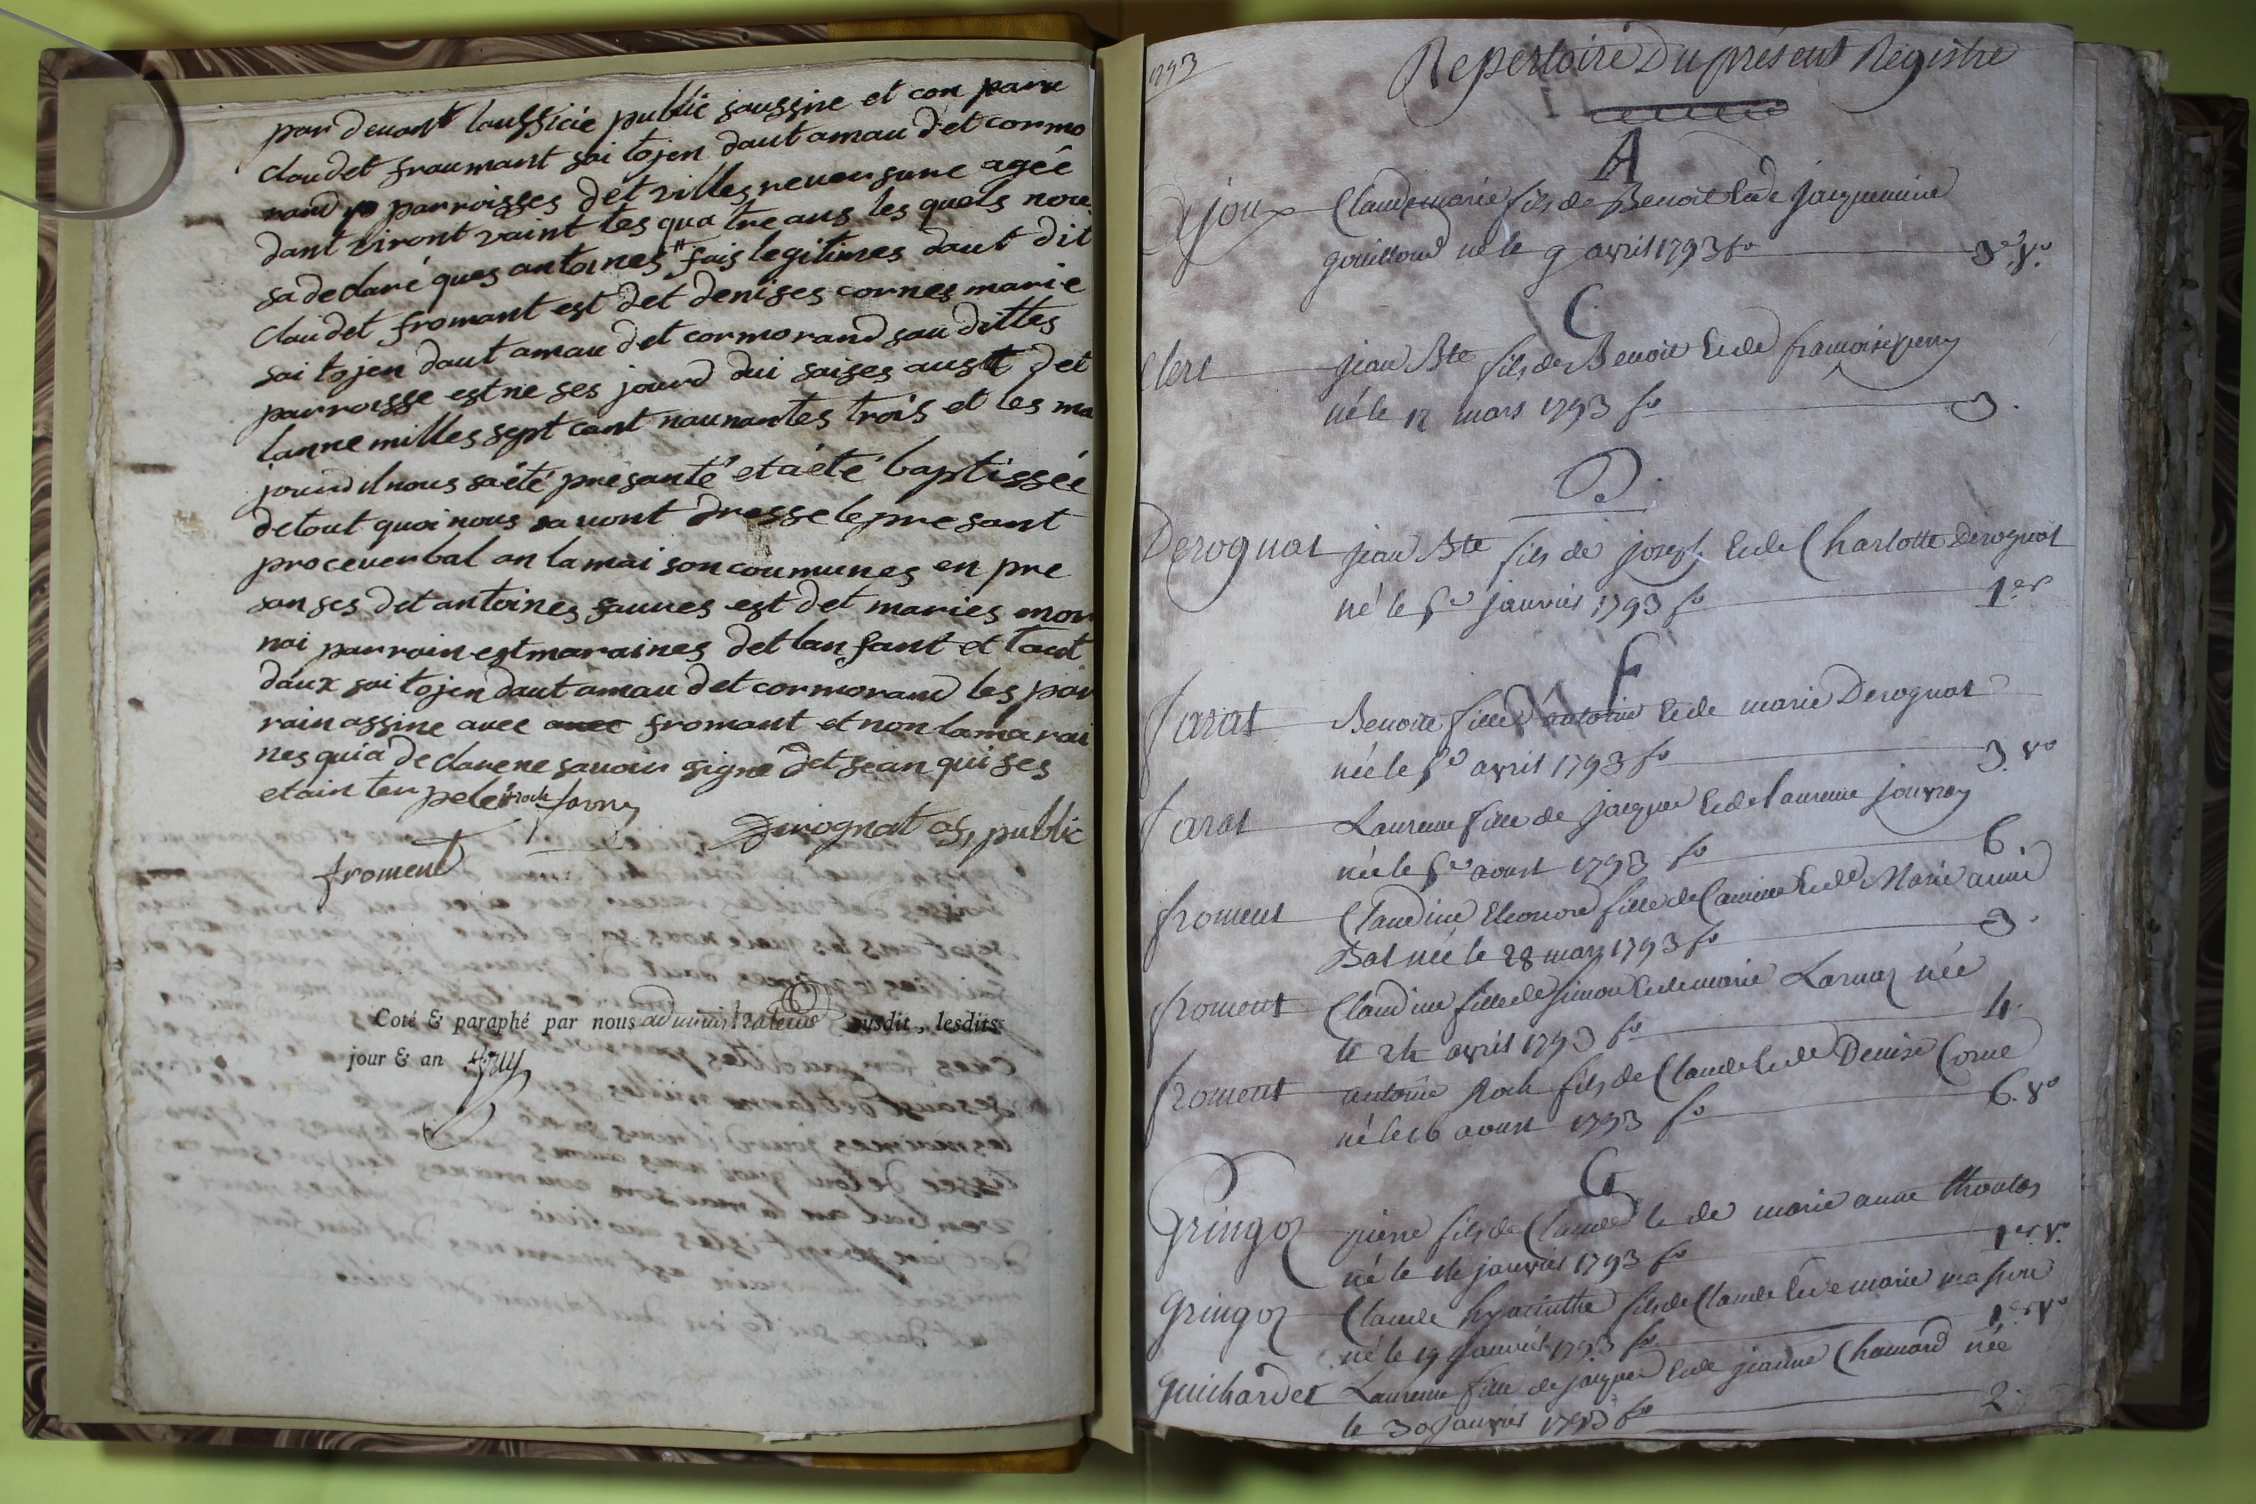 par devant laussicié public soussine et con paru
claudet fraumant soi tojen daut amau det cormo
rand parroisses det villes reversure agée
dant viront vaint tes quatre ans les quels nou
sa declaré ques antoines fais legitimes daut dit
claudet fromant est det denises cornes marie
soi tojen daut amau det cormorand sau dittes
parroisse est ne ses jourd dui saises aust det
lanne milles sept cant naunantes trois et les ma
jourd il nous sa été présanté et a été baptissée
de tout quoi nous sa vont dresse le presant
proceverbal an la mai son coumunes en pre
san ses det antoines faures est det maries mor
nai parrain est maraines det lan fant et tout
daux soi tojen daut amau det cormorand les par
rain assine avec avec fromant et non la marai
nes qui a declare ne savoir signé det sean qui ses
etain ter pelé roch favry
Derognat of, public
froment
Coté & paraphé par nous administrateur susdit, lesdits
jour & an
1793
Repertoire Du présent Régistre
A
Claude marie fils de Benoit & de jacquemine
gouilloud né le 9 avril 1793 fo 3e. vo.
C
Clert jean Bte fils de Benoit & de françoise perry
né le 12 mars 1793 fo 3.
D.
Derognat jean Bte fils de joseph & de Charlotte Derognat
né le 1er janvier 1793 fo 1er
F
farat Benoite fille d'antoine & de marie Derognat
née le 1er avril 1793 fo 3. vo
farat Laurence fille de jacque & de laurence jouvray
née le 1er aoust 1793 fo 6.
froment Claudine Eleonore fille de Camille & de Marie anne
Bat née le 28 mars 1793 fo 3.
froment Claudine fille de simon & de marie Larmaz née
le 24 avril 1793 fo 4.
froment antoine Roch fils de Claude & de Denise Corne
né le 16 aoust 1793 fo 6. vo
G
Gringoz pierre fils de Claude & de marie anne
né le 14 janvier 1793 fo 1er. vo.
Gringoz Claude hyacinthe fils de Claude & de marie masson
né le 19 janvier 1793 fo 1er vo
Guichardet Laurence fille de jacque & de jeanne Chanard née
le 30 janvier 1793 fo 2.